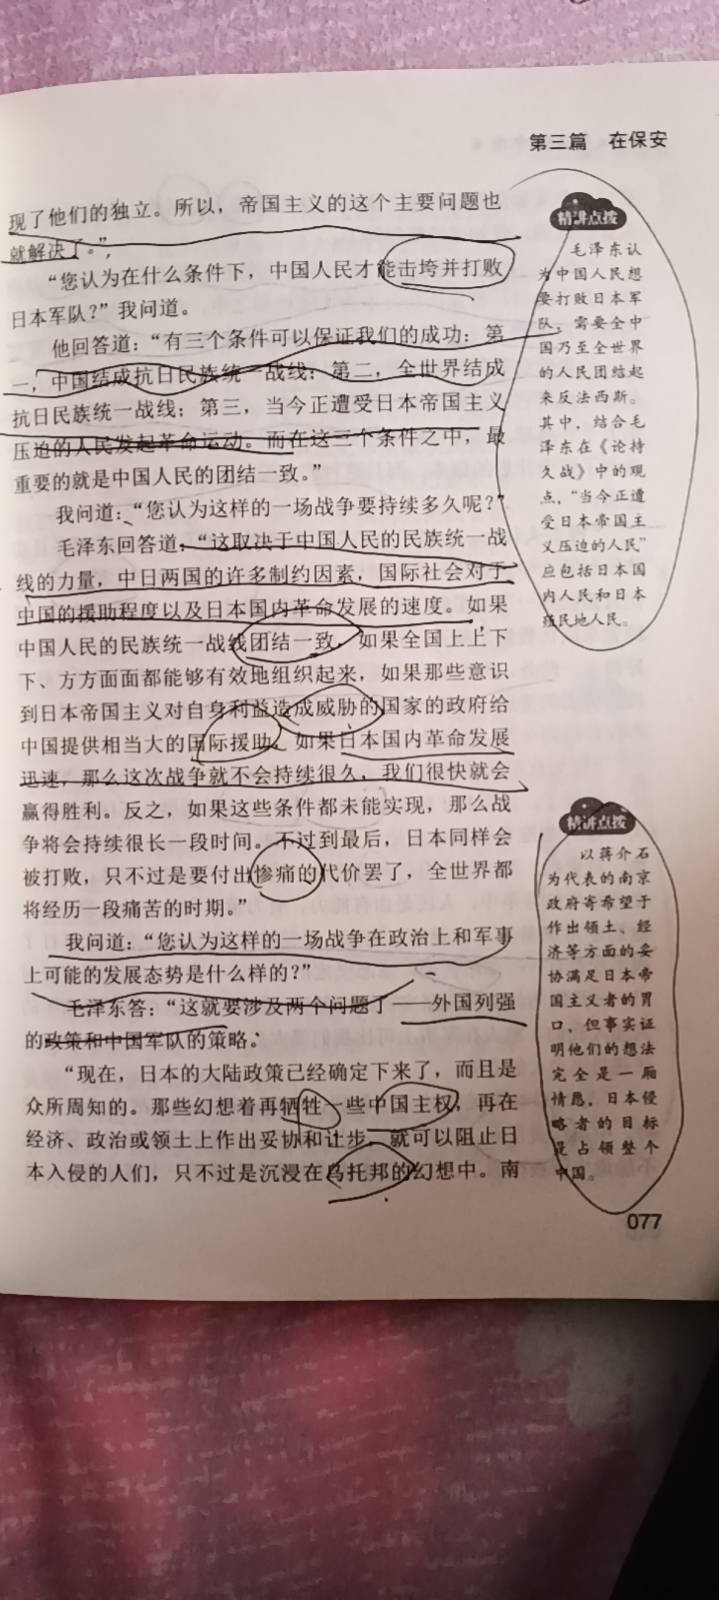 第三篇 在保安
现了他们的独立。所以，帝国主义的这个主要问题也
就解决了。”
“您认为在什么条件下，中国人民才能击垮并打败
日本军队？”我问道。
他回答道：“有三个条件可以保证我们的成功：第
一，中国结成抗日民族统一战线；第二，全世界结成
抗日民族统一战线；第三，当今正遭受日本帝国主义
压迫的人民发起革命运动。而在这三个条件之中，最
重要的就是中国人民的团结一致。”
我问道：“您认为这样的一场战争要持续多久呢？”
毛泽东回答道：“这取决于中国人民的民族统一战
线的力量，中日两国的许多制约因素，国际社会对于
中国的援助程度以及日本国内革命发展的速度。如果
中国人民的民族统一战线团结一致，如果全国上上下
下、方方面面都能够有效地组织起来，如果那些意识
到日本帝国主义对自身利益造成威胁的国家的政府给
中国提供相当大的国际援助，如果日本国内革命发展
迅速，那么这次战争就不会持续很久，我们很快就会
赢得胜利。反之，如果这些条件都未能实现，那么战
争将会持续很长一段时间。不过到最后，日本同样会
被打败，只不过是要付出惨痛的代价罢了，全世界都
将经历一段痛苦的时期。”
我问道：“您认为这样的一场战争在政治上和军事
上可能的发展态势是什么样的？”
毛泽东答：“这就要涉及两个问题了——外国列强
的政策和中国军队的策略。
“现在，日本的大陆政策已经确定下来了，而且是
众所周知的。那些幻想着再牺牲一些中国主权，再在
经济、政治或领土上作出妥协和让步，就可以阻止日
本入侵的人们，只不过是沉浸在乌托邦的幻想中。南
精讲点拨
毛泽东认
为中国人民想
要打败日本军
队，需要全中
国乃至全世界
的人民团结起
来反法西斯。
其中，结合毛
泽东在《论持
久战》中的观
点，“当今正遭
受日本帝国主
义压迫的人民”
应包括日本国
内人民和日本
殖民地人民。
精讲点拨
以蒋介石
为代表的南京
政府寄希望于
作出领土、经
济等方面的妥
协满足日本帝
国主义者的胃
口，但事实证
明他们的想法
完全是一厢
情愿，日本侵
略者的目标
是占领整个
中国。
077